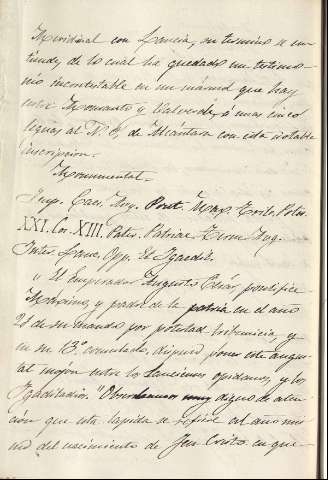 Meridinal con Lancia, su termino se en-
tiende, de lo cual ha quedado un testimo-
nio incontestable en un mármol que hay
entre Monsanto y Valverde, á unas cinco
leguas al N. O. de Alcántara con esta notable
inscripcion.
Monumental.
Imp. Caes. Aug. Pont. Max. Trib. Potes.
XXI. Cos. XIII. Pater. Patriae. Term. Aug.
Inter. Lanc. Opp. Et Igaedit.
" El Emperador Augusto César, pontífice
Maximo, y padre de la patria en el año
21 de su mando por potestad tribunicia, y
en su 13º consulado, dispuso poner este augus-
tal mojon entre los Lancienses opidanos, y los
Igaeditados. " Observamos muy digno de aten-
cion que esta lapida se refiere al año mis-
mo del nacimiento de Jesu Cristo en que